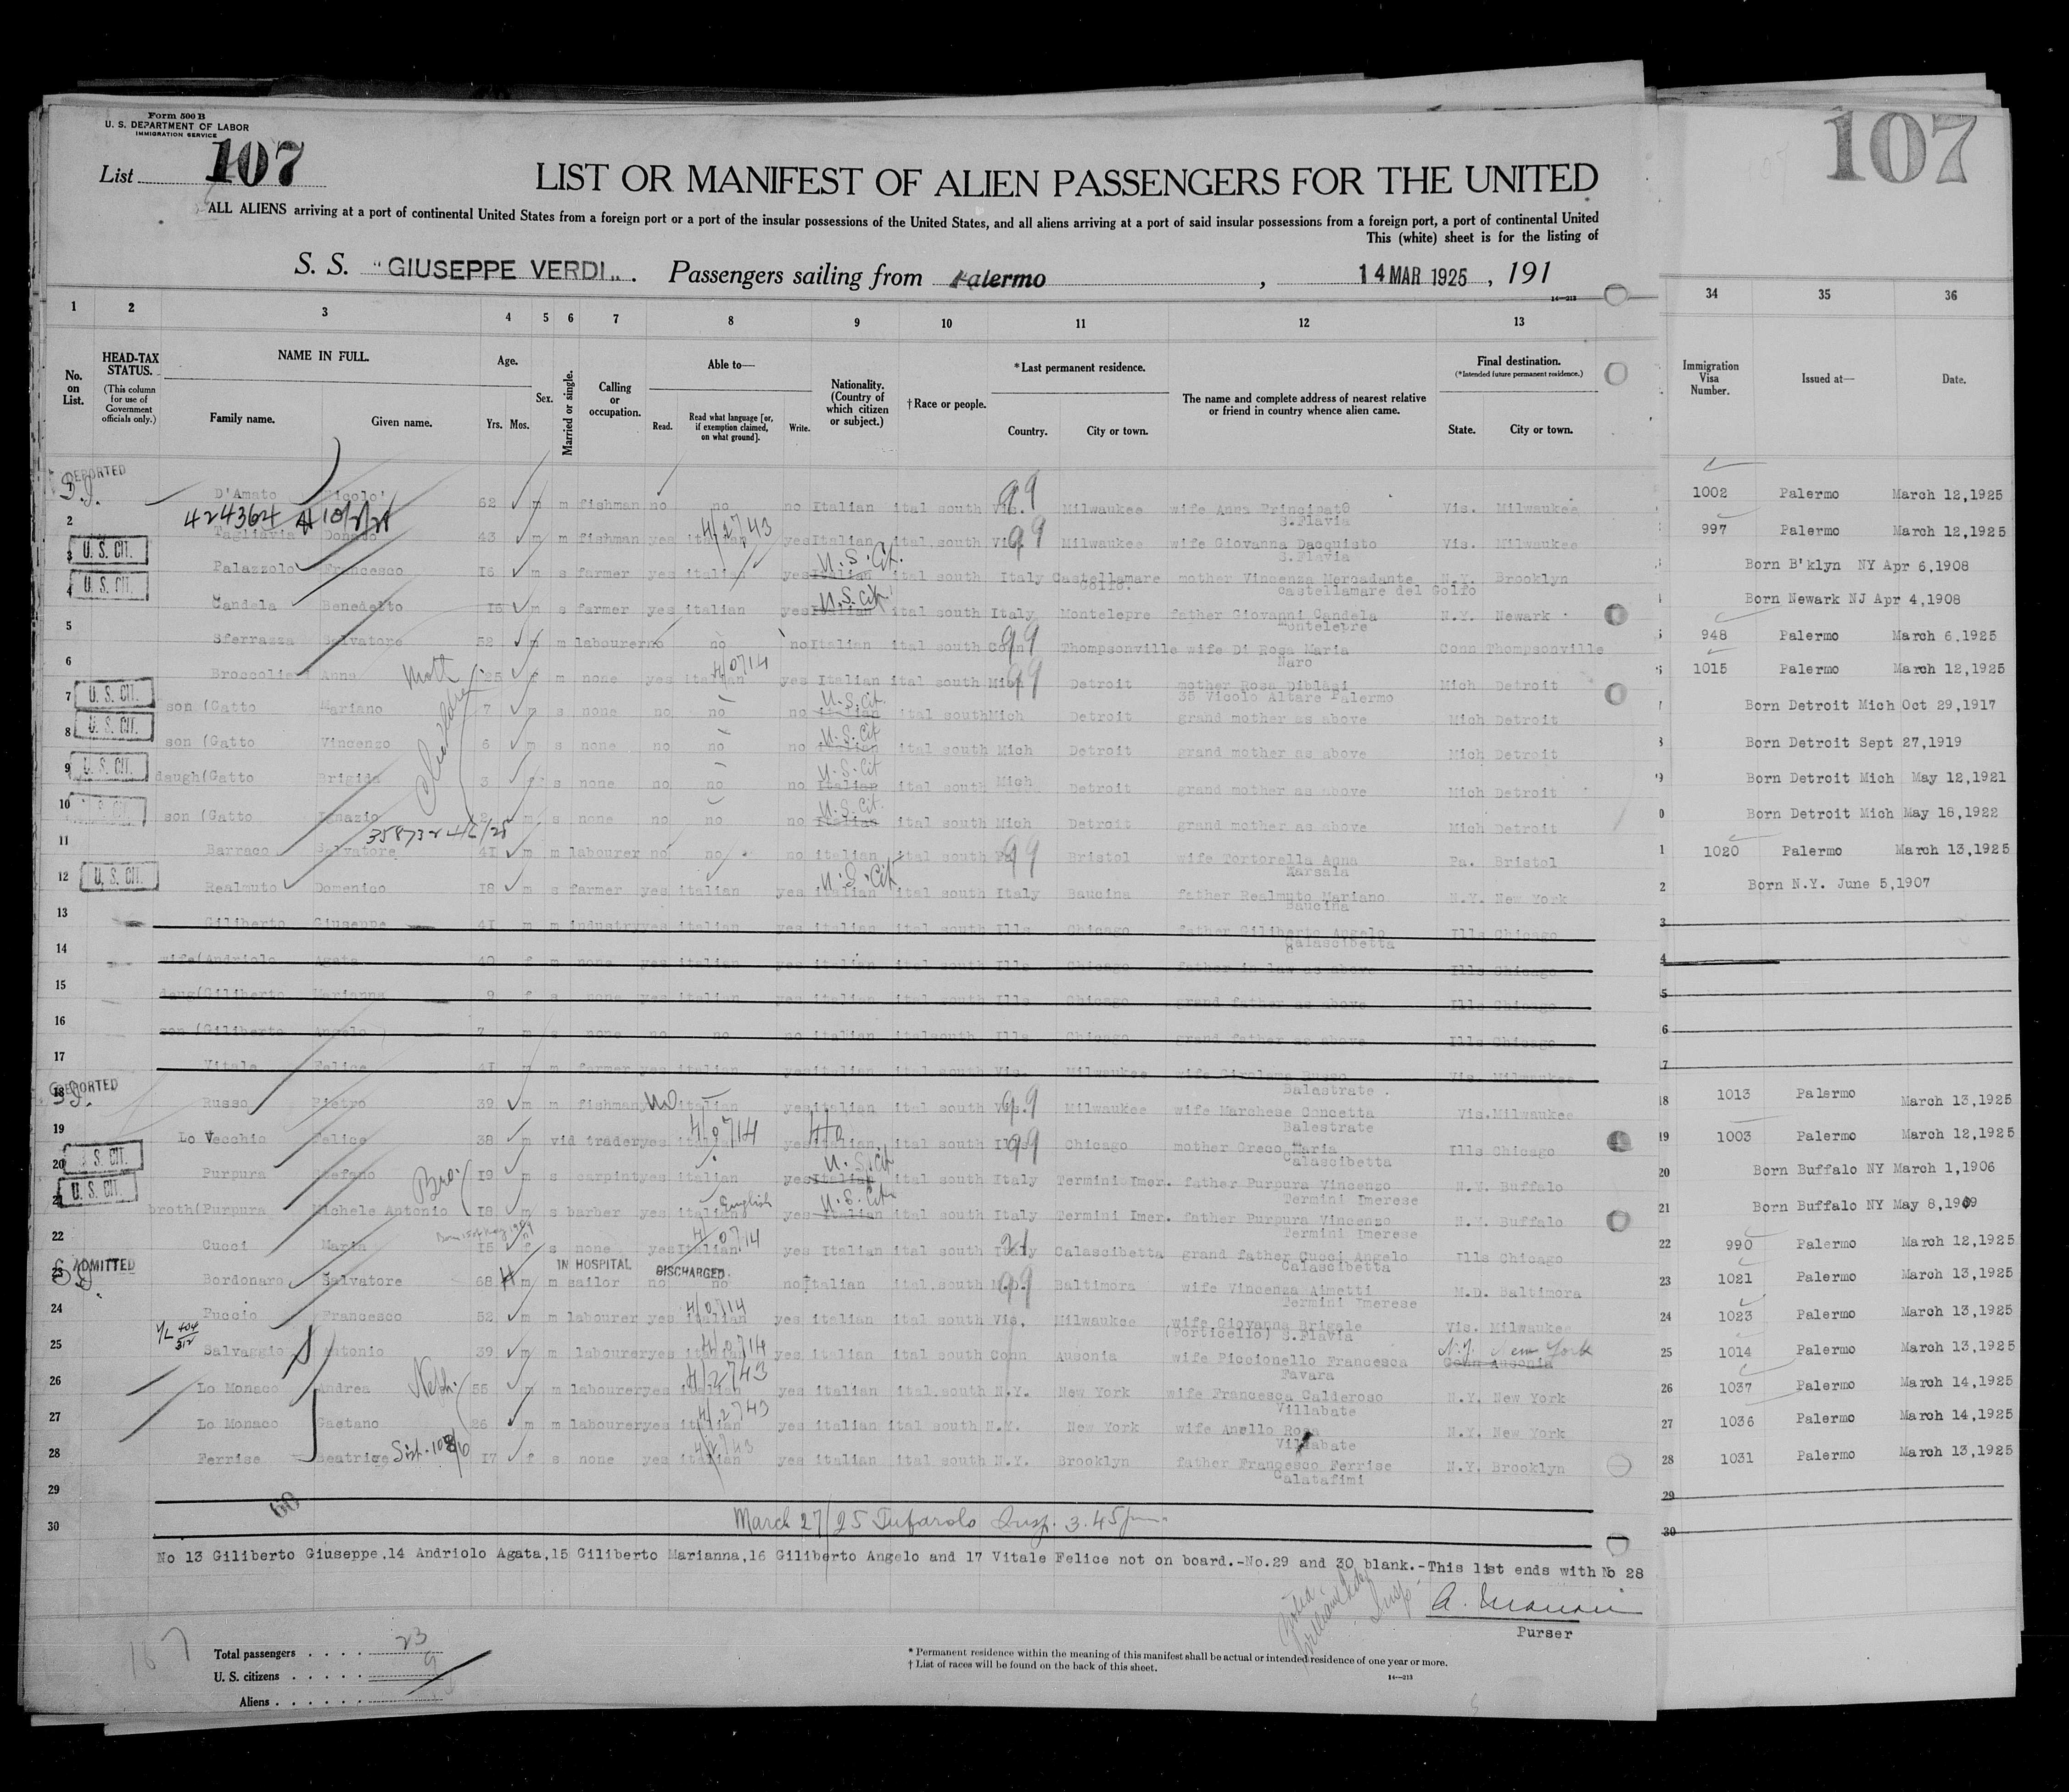 Form 500 B
U. S. DEPARTMENT OF LABOR
IMMIGRATION SERVICE
List 107
107
LIST OR MANIFEST OF ALIEN PASSENGERS FOR THE UNITED
ALL ALIENS arriving at a port of continental United States from a foreign port or a port of the insular possessions of the United States, and all aliens arriving at a port of said insular possessions from a foreign port, a port of continental United
This (white) sheet is for the listing of
S. S. "GIUSEPPE VERDI„. Passengers sailing from Palermo , 14 MAR 1925 , 191
14—213
1 2 3 4 5 6 7 8 9 10 11 12 13 34 35 36
No. on List.
HEAD-TAX STATUS.
(This column for use of Government officials only.)
NAME IN FULL.
Family name. Given name.
Age.
Yrs. Mos.
Sex.
Married or single.
Calling or occupation.
Able to—
Read. Read what language [or, if exemption claimed, on what ground]. Write.
Nationality. (Country of which citizen or subject.)
† Race or people.
* Last permanent residence.
Country. City or town.
The name and complete address of nearest relative or friend in country whence alien came.
Final destination.
(*Intended future permanent residence.)
State. City or town.
Immigration Visa Number.
Issued at—
Date.
DEPORTED
1 D'Amato Nicolo' 62 m m fishman no no no Italian ital south Vis. Milwaukee wife Anna Principato S.Flavia Vis. Milwaukee 1002 Palermo March 12,1925
424364
4/2743
2 Tagliavia Donato 43 m m fishman yes italian yes Italian ital.south Vis. Milwaukee wife Giovanna Dacquisto S.Flavia Vis. Milwaukee 997 Palermo March 12,1925
3 U. S. CIT. Palazzolo Francesco 16 m s farmer yes italian yes Italian U.S.Cit. ital south Italy Castellamare Golfo. mother Vincenza Mercadante castellamare del Golfo N.Y. Brooklyn Born B'klyn NY Apr 6,1908
4 U. S. CIT. Candela Benedetto 16 m s farmer yes italian yes Italian U.S.Cit. ital south Italy Montelepre father Giovanni Candela Montelepre N.Y. Newark Born Newark NJ Apr 4,1908
5 Sferrazza Salvatore 52 m m labourer no no no Italian ital south Conn Thompsonville wife Di Rosa Maria Naro Conn Thompsonville 948 Palermo March 6.1925
4/0714
6 Broccolie Anna Moth 25 f m none yes italian yes Italian ital south Mich Detroit mother Rosa Diblasi 35 Vicolo Altare Palermo Mich Detroit 1015 Palermo March 12,1925
7 U. S. CIT. son (Gatto Mariano 7 m s none no no no Italian U.S.Cit. ital south Mich Detroit grand mother as above Mich Detroit Born Detroit Mich Oct 29,1917
8 U. S. CIT. son (Gatto Vincenzo 6 m s none no no no Italian U.S.Cit ital south Mich Detroit grand mother as above Mich Detroit Born Detroit Sept 27,1919
9 U. S. CIT. daugh(Gatto Brigida 3 f s none no no no Italian U.S.Cit ital south Mich Detroit grand mother as above Mich Detroit Born Detroit Mich May 12,1921
10 son (Gatto Ignazio 2 m s none no no no Italian U.S.Cit. ital south Mich Detroit grand mother as above Mich Detroit Born Detroit Mich May 18,1922
11 Barraco Salvatore 41 m m labourer no no no italian ital south Pa. Bristol wife Tortorella Anna Marsala Pa. Bristol 1020 Palermo March 13,1925
12 U. S. CIT. Realmuto Domenico 18 m s farmer yes italian yes italian U.S.Cit ital south Italy Baucina father Realmuto Mariano Baucina N.Y. New York Born N.Y. June 5,1907
13 Giliberto Giuseppe 41 m m industry yes italian yes italian ital south Ills Chicago father Giliberto Angelo Calascibetta Ills Chicago
14 wife(Andriolo Agata 40 f m none yes italian yes italian ital south Ills Chicago father in law as above Ills Chicago
15 daug(Giliberto Marianna 9 f s none yes italian yes italian ital south Ills Chicago grand father as above Ills Chicago
16 son (Giliberto Angelo 7 m s none no no no italian italsouth Ills Chicago grand father as above Ills Chicago
17 Vitale Felice 41 m m farmer yes italian yes italian ital south Vis. Milwaukee wife Girolama Russo Balestrate . Vis. Milwaukee
DEPORTED
18 Russo Pietro 39 m m fishman no italian yes italian ital south Vis. Milwaukee wife Marchese Concetta Balestrate Vis.Milwaukee 1013 Palermo March 13,1925
4/0714
19 Lo Vecchio Felice 38 m vid trader yes italian yes italian ital south Ills Chicago mother Greco Maria Calascibetta Ills Chicago 1003 Palermo March 12,1925
20 S. CIT. Purpura Stefano Bro. 19 m s carpint yes italian yes Italian U.S.Cit ital south Italy Termini Imer. father Purpura Vincenzo Termini Imerese N.Y. Buffalo Born Buffalo NY March 1,1906
21 U. S. CIT. broth(Purpura Michele Antonio 18 m s barber yes italian English yes Italian U.S.Cit. ital south Italy Termini Imer. father Purpura Vincenzo Termini Imerese N.Y. Buffalo Born Buffalo NY May 8,1909
4/0714
22 Cucci Maria 15 f s none yes Italian yes Italian ital south Italy Calascibetta grand father Cucci Angelo Calascibetta Ills Chicago 990 Palermo March 12,1925
ADMITTED IN HOSPITAL DISCHARGED
23 Bordonaro Salvatore 68 m m sailor no no no Italian ital.south M.D. Baltimora wife Vincenza Aimetti Termini Imerese M.D. Baltimora 1021 Palermo March 13,1925
4/0714
24 Puccio Francesco 52 m m labourer yes italian yes italian ital south Vis. Milwaukee wife Giovanna Brigale (Porticello) S.Flavia Vis. Milwaukee 1023 Palermo March 13,1925
V/L 404/312 4/0714
25 Salvaggio Antonio 39 m m labourer yes italian yes italian ital south Conn Ausonia wife Piccionello Francesca Favara Conn Ausonia N.Y. New York 1014 Palermo March 13,1925
4/2743
26 Lo Monaco Andrea Neph. 55 m m labourer yes italian yes italian ital.south N.Y. New York wife Francesca Calderoso Villabate N.Y. New York 1037 Palermo March 14,1925
4/2743
27 Lo Monaco Gaetano 26 m m labourer yes italian yes italian ital south N.Y. New York wife Anello Rosa Villabate N.Y. New York 1036 Palermo March 14,1925
4/2743
28 Ferrise Beatrice 17 f s none yes italian yes italian ital south N.Y. Brooklyn father Francesco Ferrise Calatafimi N.Y. Brooklyn 1031 Palermo March 13,1925
29
30
March 27/25 Tufarolo Insp. 3.45 pm.
No 13 Giliberto Giuseppe.14 Andriolo Agata,15 Giliberto Marianna,16 Giliberto Angelo and 17 Vitale Felice not on board.-No.29 and 30 blank.-This list ends with No 28
Purser
167
Total passengers . . . . 23
U. S. citizens . . . . . 9
Aliens . . . . . .
* Permanent residence within the meaning of this manifest shall be actual or intended residence of one year or more.
† List of races will be found on the back of this sheet.
14—213